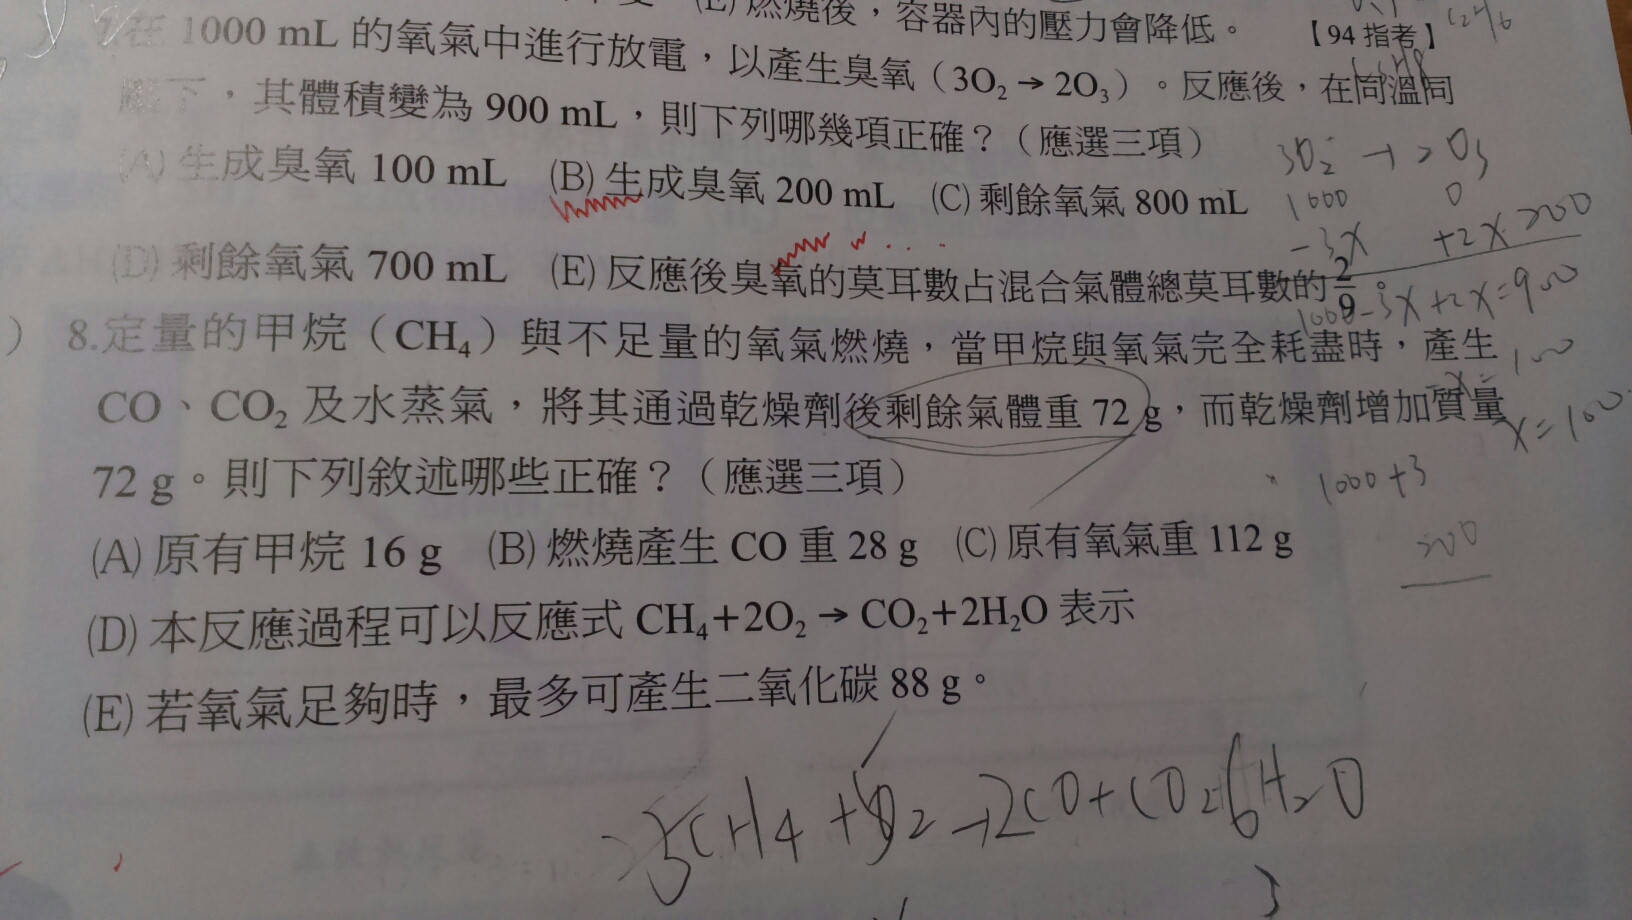 (E) 燃燒後，容器內的壓力會降低。 【94 指考】
7.在 1000 mL 的氧氣中進行放電，以產生臭氧（3O₂→2O₃）。反應後，在同溫同
壓下，其體積變為 900 mL，則下列哪幾項正確？（應選三項）
(A) 生成臭氧 100 mL (B) 生成臭氧 200 mL (C) 剩餘氧氣 800 mL
(D) 剩餘氧氣 700 mL (E) 反應後臭氧的莫耳數占混合氣體總莫耳數的 2/9。
3O₂ → 2O₃
1000 0
-3x +2x 200
1000-3x+2x=900
-x=100
x=100
1000+3
200
) 8.定量的甲烷（CH₄）與不足量的氧氣燃燒，當甲烷與氧氣完全耗盡時，產生
CO、CO₂ 及水蒸氣，將其通過乾燥劑後剩餘氣體重 72 g，而乾燥劑增加質量
72 g。則下列敘述哪些正確？（應選三項）
(A) 原有甲烷 16 g (B) 燃燒產生 CO 重 28 g (C) 原有氧氣重 112 g
(D) 本反應過程可以反應式 CH₄+2O₂→CO₂+2H₂O 表示
(E) 若氧氣足夠時，最多可產生二氧化碳 88 g。
CH₄ + O₂ → 2CO + CO₂ 6H₂O